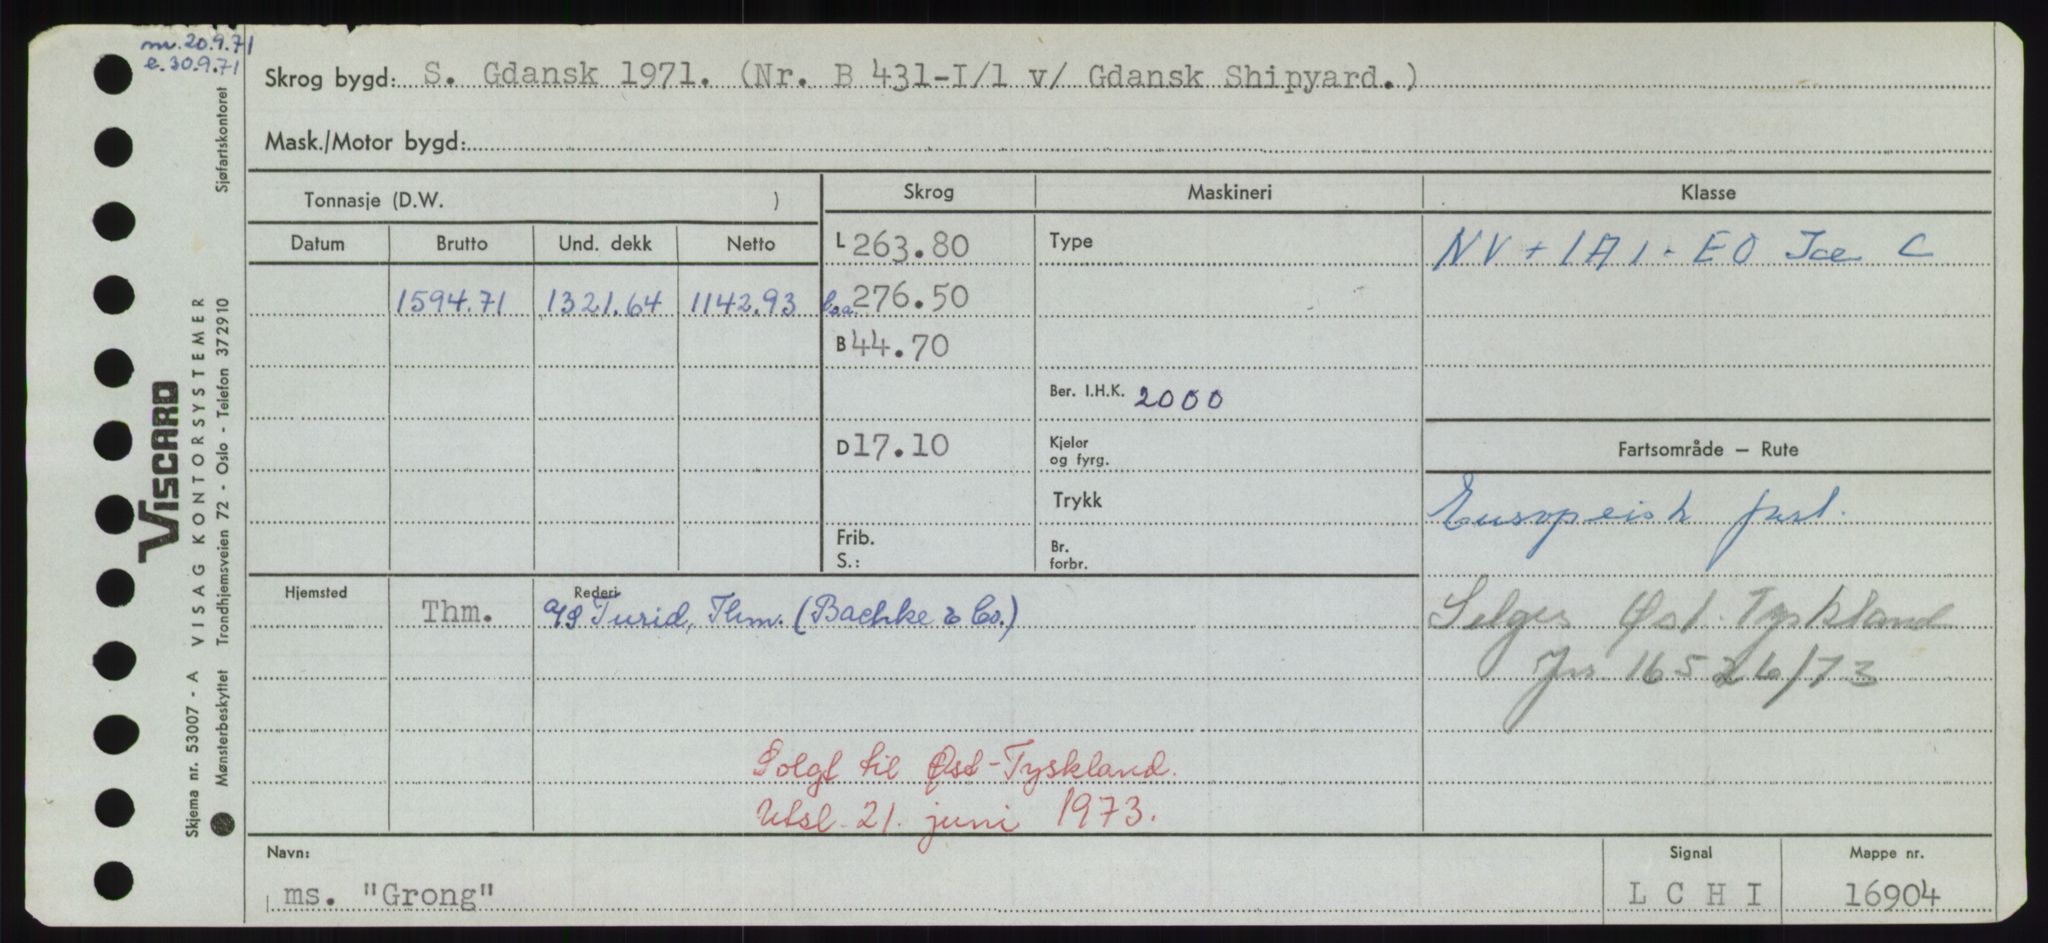 m. 20.9.71
e. 30.9.71
Skrog bygd: S. Gdansk 1971. (Nr. B 431-I/1 v/ Gdansk Shipyard.)
Mask./Motor bygd:
Tonnasje (D.W. )
Skrog
Maskineri
Klasse
Datum Brutto Und. dekk Netto
L 263.80
Type
NV + 1A1 - EO Ice C
1594.71 1321.64 1142.93
l.o.a. 276.50
B 44.70
Ber. I.H.K. 2000
D 17.10
Kjeler
og fyrg.
Fartsområde — Rute
Trykk
Europeisk fart.
Frib.
S.:
Br.
forbr.
Hjemsted
Rederi
Thm.
A/S Turid, Thm. (Bachke & Co.)
Selges Øst-Tyskland
Jnr. 16526/73
Solgt til Øst-Tyskland.
Utsl. 21. juni 1973.
Navn:
Signal
Mappe nr.
ms. "Grong"
L C H I
16904
VISCARD
Skjema nr. 53007 - A VISAG KONTORSYSTEMER
Mønsterbeskyttet Trondhjemsveien 72 - Oslo - Telefon 372910 Sjøfartskontoret